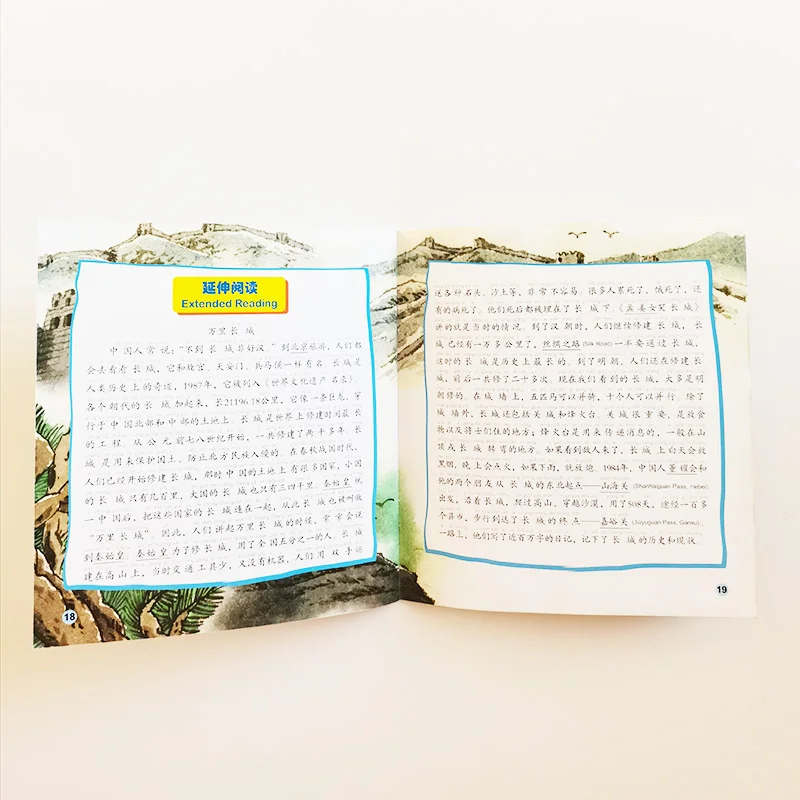 延伸阅读
Extended Reading
万里长城
中国人常说:“不到长城非好汉。”到北京旅游,人们都
会去看看长城,它和故宫、天安门、兵马俑一样有名。长城是
人类历史上的奇迹,1987年,它被列入《世界文化遗产名录》。
各个朝代的长城加起来,长21196.18公里,它像一条巨龙,穿
行于中国北部和中部的土地上。长城是世界上修建时间最长
的工程,从公元前七八世纪开始,一共修建了两千多年。长
城是用来保护国土、防止北方民族入侵的。在春秋战国时代,
人们已经开始修建长城,那时中国的土地上有很多国家,小国
的长城只有几百里,大国的长城也只有三四千里。秦始皇统
一中国后,把这些国家的长城连在一起,从此长城也被叫做
“万里长城”。因此,人们讲起万里长城的时候,常常会谈
到秦始皇。秦始皇为了修长城,用了全国五分之一的人。长城
建在高山上,当时交通工具少,又没有机器,人们用双手运
18
送各种石头、沙土等,非常不容易。很多人累死了,饿死了,还
有的病死了。他们死后都被埋在了长城下。《孟姜女哭长城》
讲的就是当时的情况。到了汉朝时,人们继续修建长城,长
城已经有一万多公里了,丝绸之路(Silk Road)一半要通过长城,
这时的长城是历史上最长的。到了明朝,人们还在修建长
城,前后一共修了二十多次。现在我们看到的长城,大多是明
朝修的。在城墙上,五匹马可以并骑,十个人可以并行。除了
城墙外,长城还包括关城和烽火台。关城很重要,是放食
物以及将士们住的地方;烽火台是用来传递消息的,一般在山
顶或长城转弯的地方。如果看到敌人来了,长城上白天会放
黑烟,晚上会点火,如果下雨,就放炮。1984年,中国人董耀会和
他的两个朋友从长城的东北起点——山海关(Shanhaiguan Pass, Hebei)
出发,沿着长城,爬过高山,穿越沙漠,用了508天,途经一百多
个县市,步行到达了长城的终点——嘉峪关(Jiayuguan Pass, Gansu)。
一路上,他们写了近百万字的日记,记下了长城的历史和现状。
19